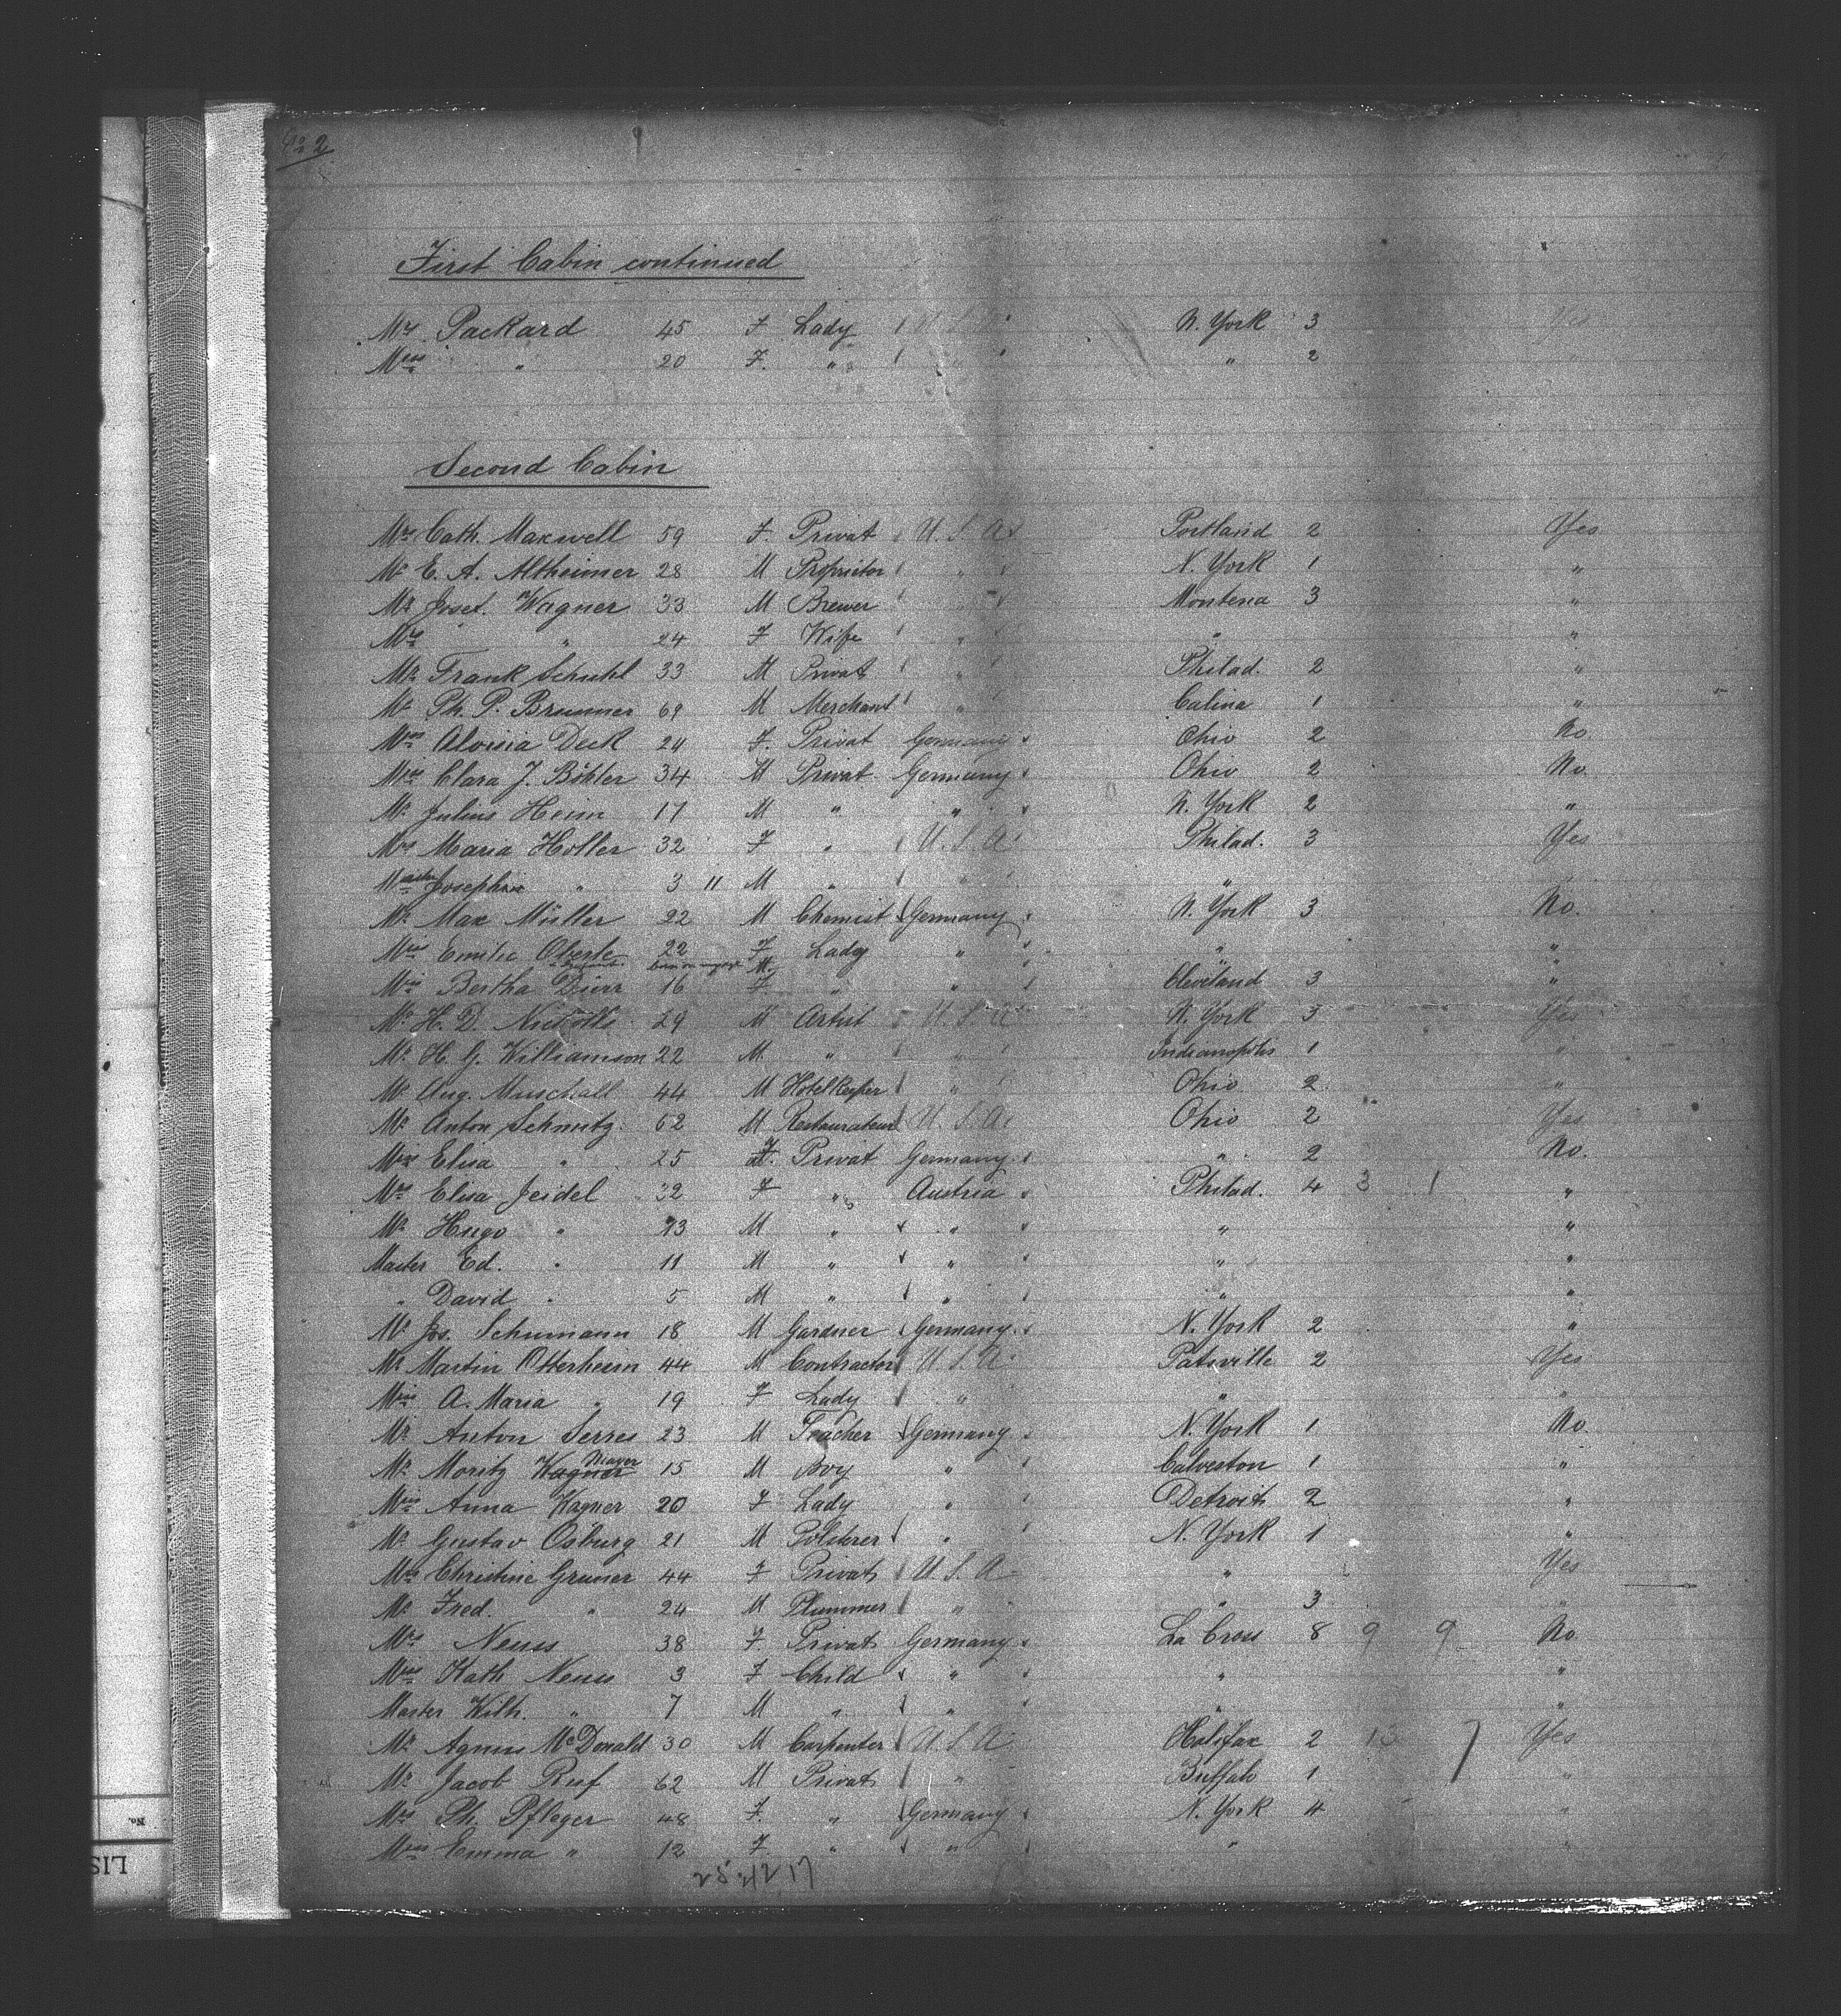 First Cabin continued
Mrs. Packard 45 F Lady U. S. A. N. York 3 Yes
Miss " 20 F. " " " 2
Second Cabin
Mrs Cath. Maxwell 59 F. Privat U. S. A. Portland 2 Yes
Mr E. A. Altheimer 28 M Proprietor " N. York 1 "
Mr Josef. Wagner 33 M Brewer " Montena 3 "
Mrs " 24 F Wife " " "
Mr Frank Schuhl 33 M Privat " Philad. 2 "
Mr Ph. P. Brunner 69 M Merchant " Calina 1 "
Miss Aloisia Deck 24 F. Privat Germany Ohio 2 No
Miss Clara J. Böhler 34 M Privat Germany Ohio 2 No.
Mr Julius Heim 17 M " " N. York 2 "
Mrs Maria Holler 32 F " U. S. A. Philad. 3 Yes
Master Joseph " 3 11 M " " "
Mr Max Müller 22 M Chemist Germany N. York 3 No.
Miss Emilie Oberle 22 F Lady " " "
M.
Miss Bertha Dürr 16 F " " Cleveland 3 "
Mr H. D. Nicholls 29 M Artist U. S. A N. York 3 Yes
Mr H. G. Williamson 22 M. " " Indianopolis 1 "
Mr Aug. Muschall 44 M Hotelkeeper " Ohio 2 "
Mr Anton Schmitz 62 M Restaurateur U. S. A. Ohio 2 Yes
Miss Elisa " 25 F. Privat Germany " 2 No.
Mrs Elisa Jeidel 32 F " Austria Philad. 4 3 1 "
Mr Hugo " 13 M " " " "
Master Ed. " 11 M " " " "
" David " 5 M " " " "
Mr Jos. Schumann 18 M Gardner Germany N. York 2 "
Mr Martin Otterheim 44 M Contractor U. S. A. Patsville 2 Yes
Miss A. Maria " 19 F Lady " " "
Mr Anton Serres 23 M Teacher Germany N. York 1 No.
Mr Moritz Wagner Mayer 15 M Boy " Calveston 1 "
Miss Anna Wagner 20 F Lady " Detroit 2 "
Mr Gustav Osburg 21 M Polsterer " N. York 1 "
Mrs Christine Gruner 44 F Privat U. S. A " Yes
Mr Fred. " 24 M Plummer " " 3 "
Mrs Neuss 38 F. Privat Germany La Cross 8 9 9 No
Miss Kath Neuss 3 F Child " " "
Master Wilh. " 7 M " " " "
Mr Agnus McDonald 30 M Carpenter U. S. A. Halifax 2 13 7 Yes
Mr Jacob Ruf 62 M Privat " Buffalo 1 "
Mrs Ph. Pfleger 48 F. " Germany N. York 4 "
Miss Emma " 12 F. " " " "
No.
LIS